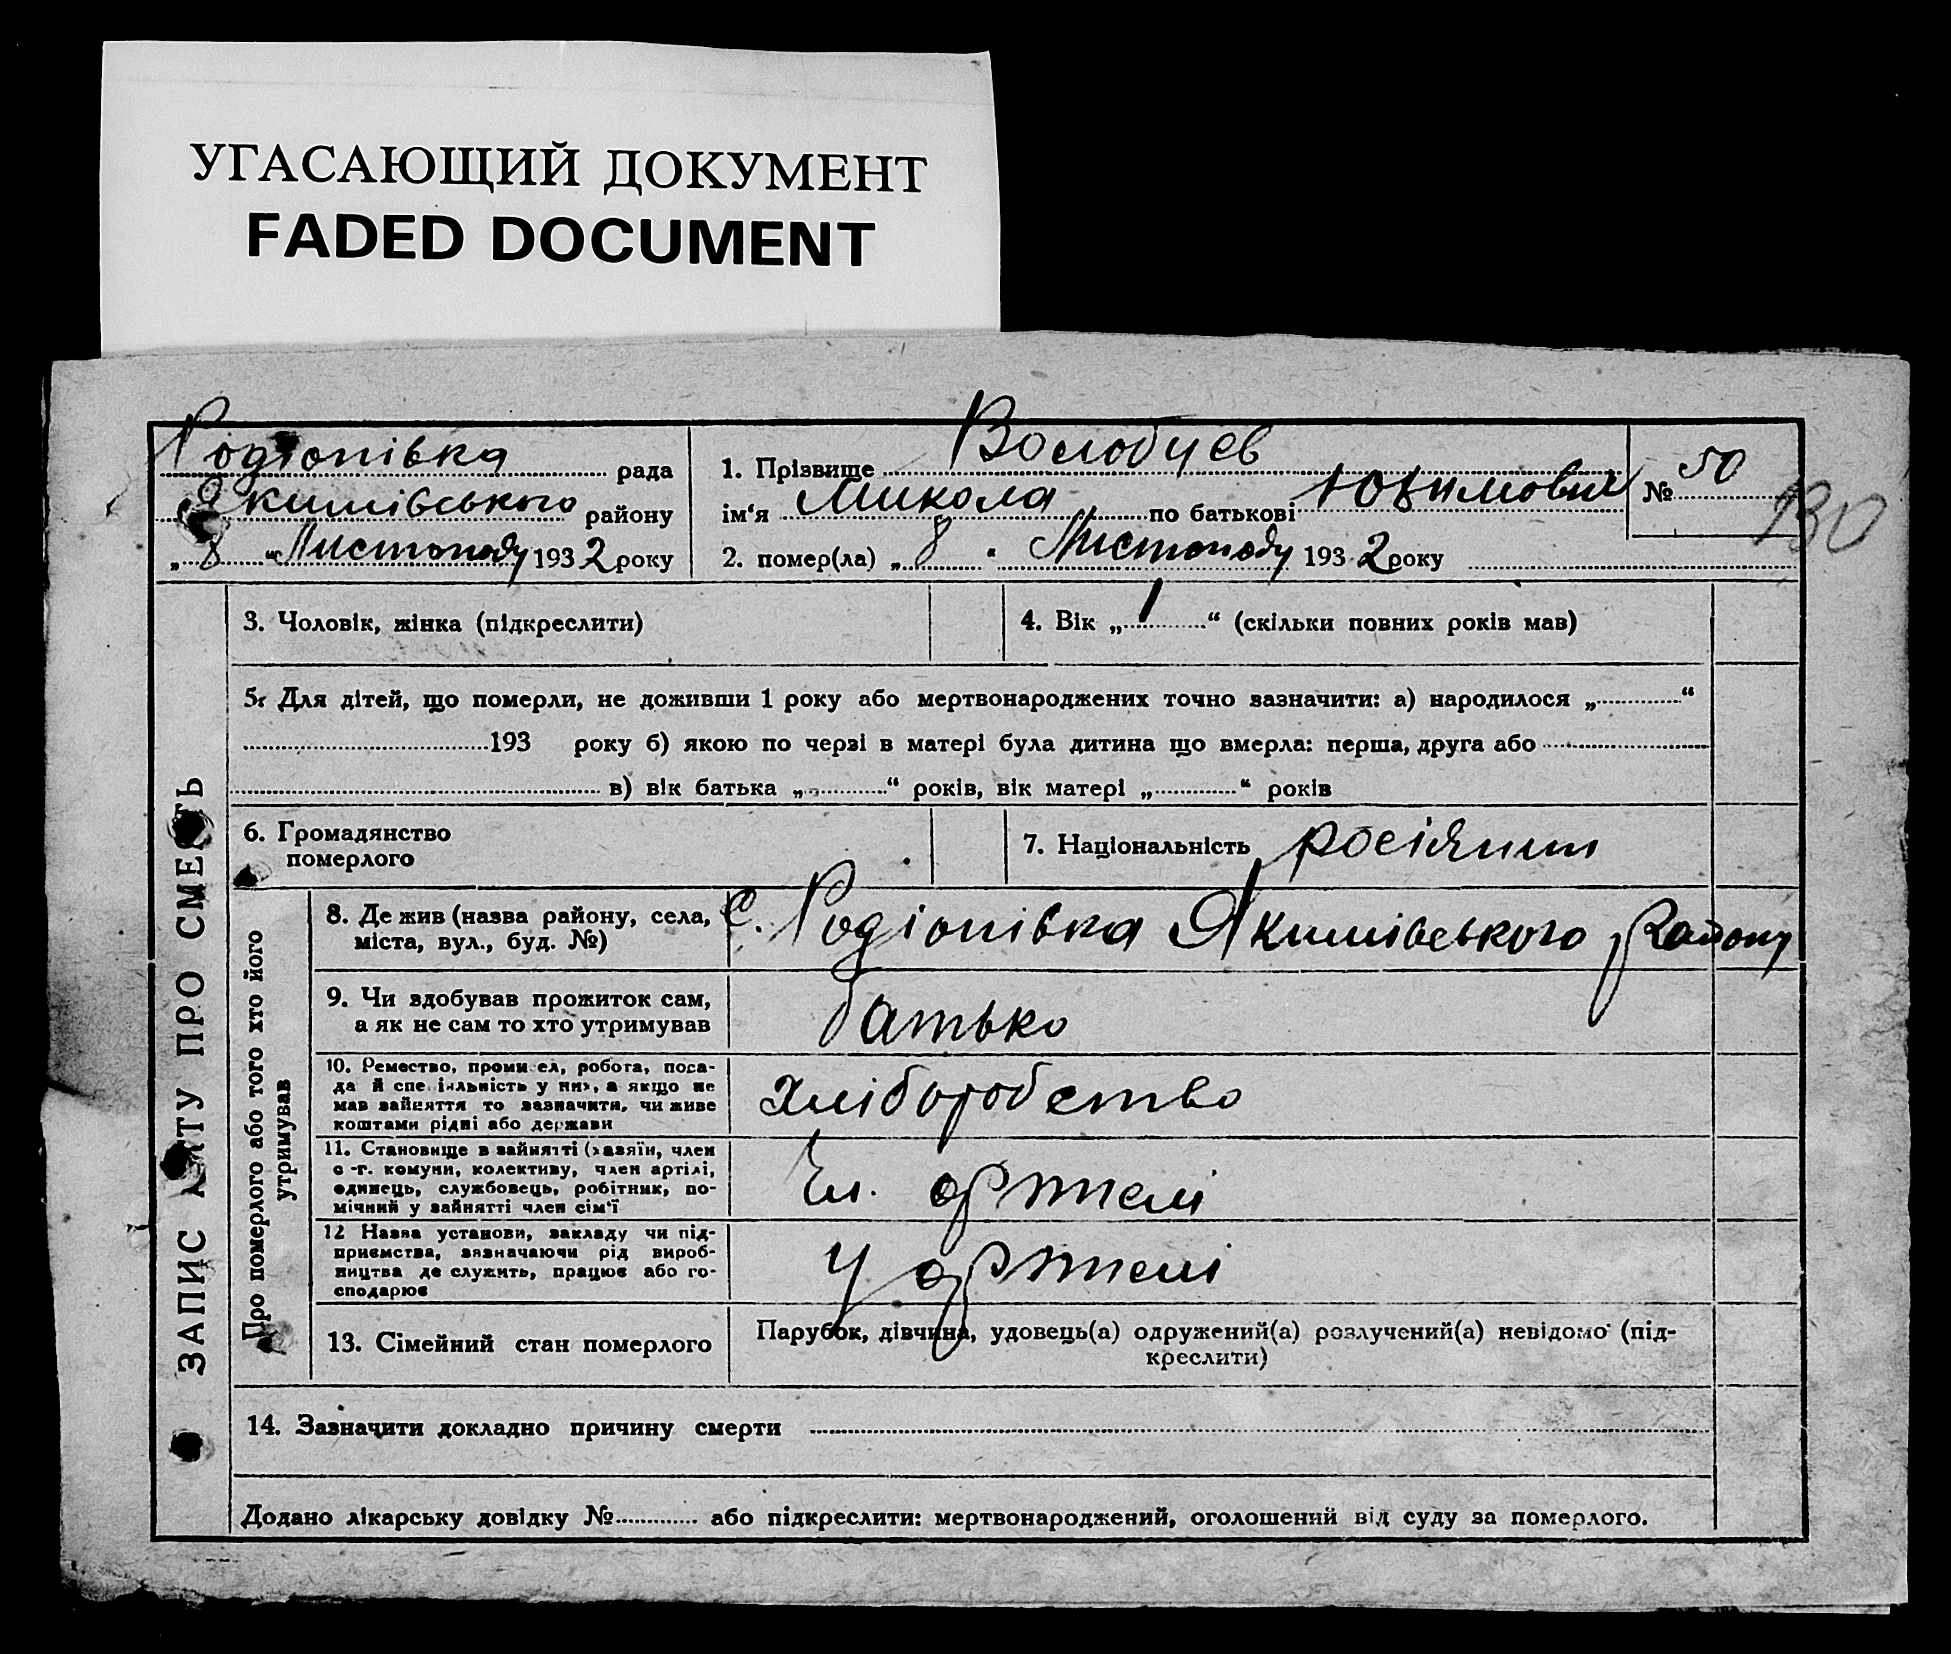 УГАСАЮЩИЙ ДОКУМЕНТ
FADED DOCUMENT
Родіонівка рада
Якимівського району
„ 8 “ Листопаду 1932 року
1. Прізвище Волобуєв
ім‘я Микола по батькові Юхимович
2. помер(ла) „ 8 “ Листопаду 1932 року
№ 50
130
ЗАПИС АКТУ ПРО СМЕРТЬ
3. Чоловік, жінка (підкреслити)
4. Вік „ 1 “ (скільки повних років мав)
5. Для дітей, що померли, не доживши 1 року або мертвонароджених точно зазначити: а) народилося „ “
193 року б) якою по черзі в матері була дитина що вмерла: перша, друга або
в) вік батька „ “ років, вік матері „ “ років
6. Громадянство
померлого
7. Національність росіянин
Про померлого або того хто його
утримував
8. Де жив (назва району, села,
міста, вул., буд. №)
с. Родіонівка Якимівського району
9. Чи здобував прожиток сам,
а як не сам то хто утримував
батько
10. Ремество, промисел, робота, поса-
да й спеціяльність у них, а якщо не
мав зайняття то зазначити, чи живе
коштами рідні або держави
хліборобство
11. Становище в зайнятті (хазяїн, член
с.-г. комуни, колективу, член артілі,
одинець, службовець, робітник, по-
мічний у зайнятті член сім‘ї
Чл. артелі
12 Назва установи, закладу чи під-
приємства, зазначаючи рід вироб-
ництва де служить, працює або го-
сподарює
у артелі
13. Сімейний стан померлого
Парубок, дівчина, удовець(а) одружений(а) розлучений(а) невідомо (під-
креслити)
14. Зазначити докладно причину смерти
Додано лікарську довідку № або підкреслити: мертвонароджений, оголошений від суду за померлого.